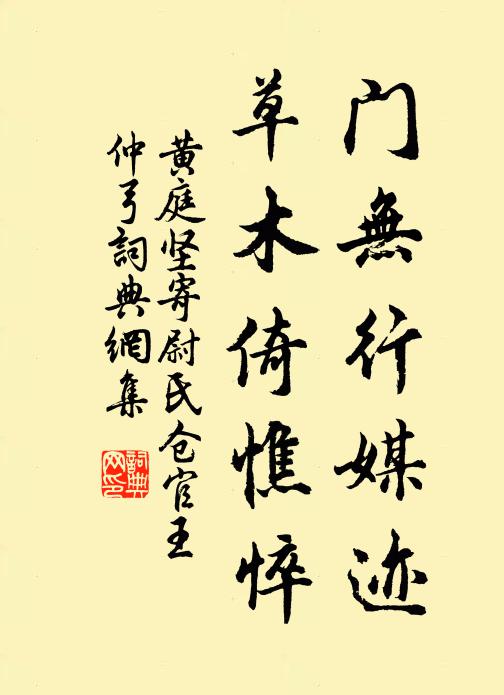 门無行媒迹
草木倚憔悴
黄庭坚寄尉氏仓官王
仲弓詞典網集
詞典
网印